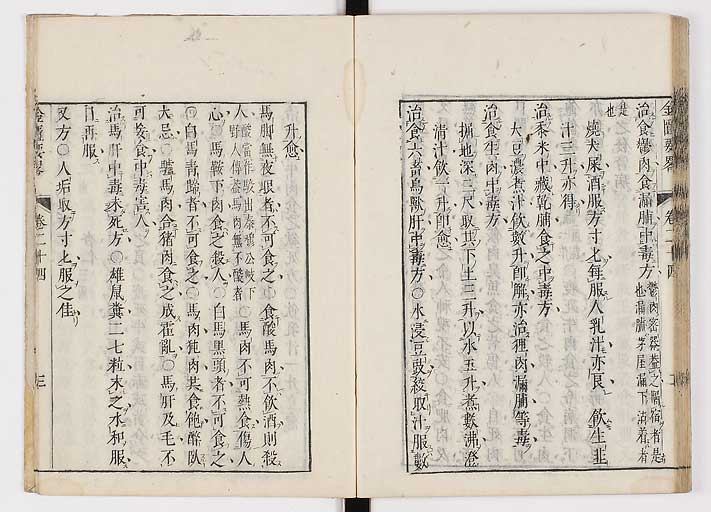 金匱要略 卷二十四
治食鬱肉食漏脯中毒方 鬱肉密器蓋之隔宿者是也漏脯茅屋漏下沾着者是也
燒犬屎酒服方寸匕每服人乳汁亦良 飲生韭
汁三升亦得
治黍米中藏乾脯食之中毒方
大豆濃煮汁飲數升卽解亦治狸肉漏脯等毒
治食生肉中毒方
掘地深三尺取其下土三升以水五升煮數沸澄
清汁飲一升卽愈
治食六畜鳥獸肝中毒方○水浸豆豉絞取汁服數
升愈
馬脚無夜眼者不可食之○食酸馬肉不飲酒則殺
人 酸當作駿出秦穆公岐下野人傳蓋馬肉無不酸者○馬肉不可熱食傷人
心○馬鞍下肉食之殺人○白馬黑頭者不可食之
○白馬靑蹄者不可食之○馬肉㹠肉共食飽醉臥
大忌○驢馬肉合猪肉食之成霍亂○馬肝及毛不
可妄食中毒害人
治馬肝中毒未死方○雄鼠糞二七粒末之水和服
日再服
又方○人垢取方寸匕服之佳
金匱要略 卷二十四 三